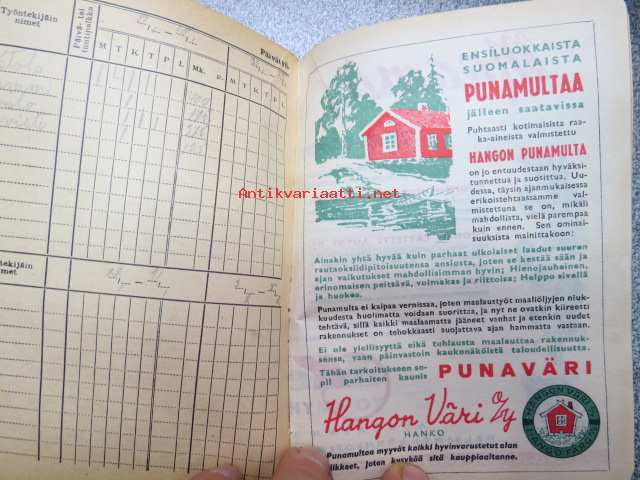 Työntekijäin
nimet
Päivä- tai
tuntipalkka
M T K T P L Mk. P.
M T K T P L
Päivätyö
ENSILUOKKAISTA
SUOMALAISTA
PUNAMULTAA
jälleen saatavissa
Puhtaasti kotimaisista raa-
ka-aineista valmistettu
HANGON PUNAMULTA
on jo entuudestaan hyväksi
tunnettua ja suosittua. Uu-
dessa, täysin ajanmukaisessa
erikoistehtaassamme val-
mistettuna se on, mikäli
mahdollista, vielä parempaa
kuin ennen. Sen ominai-
suuksista mainittakoon:
Antikvariaatti.net
Ainakin yhtä hyvää kuin parhaat ulkolaiset laadut suuren
rautaoksiidipitoisuutensa ansiosta, joten se kestää sään ja
ajan vaikutukset mahdollisimman hyvin; Hienojauhoinen,
erinomaisen peittävä, voimakas ja riittoisa; Helppo sivellä
ja huokea.
Punamulta ei kaipaa vernissaa, joten maalaustyöt maaliöljyjen niuk-
kuudesta huolimatta voidaan suorittaa, ja nyt ne ovatkin kiireesti
tehtävä, sillä kaikki maalaamatta jääneet vanhat ja etenkin uudet
rakennukset on tehokkaasti suojattava ajan hammasta vastaan.
Ei ole ylellisyyttä eikä tuhlausta maalauttaa rakennuk-
sensa, vaan päinvastoin kaukonäköistä taloudellisuutta.
Tähän tarkoitukseen so-
pii parhaiten kaunis PUNAVÄRI
Hangon Väri O/y
HANKO
Punamultaa myyvät kaikki hyvinvarustetut alan
liikkeet, joten kysykää sitä kauppiaaltanne.
tekijäin
nimet
M T K T P L Mk. P.
M T K T P L